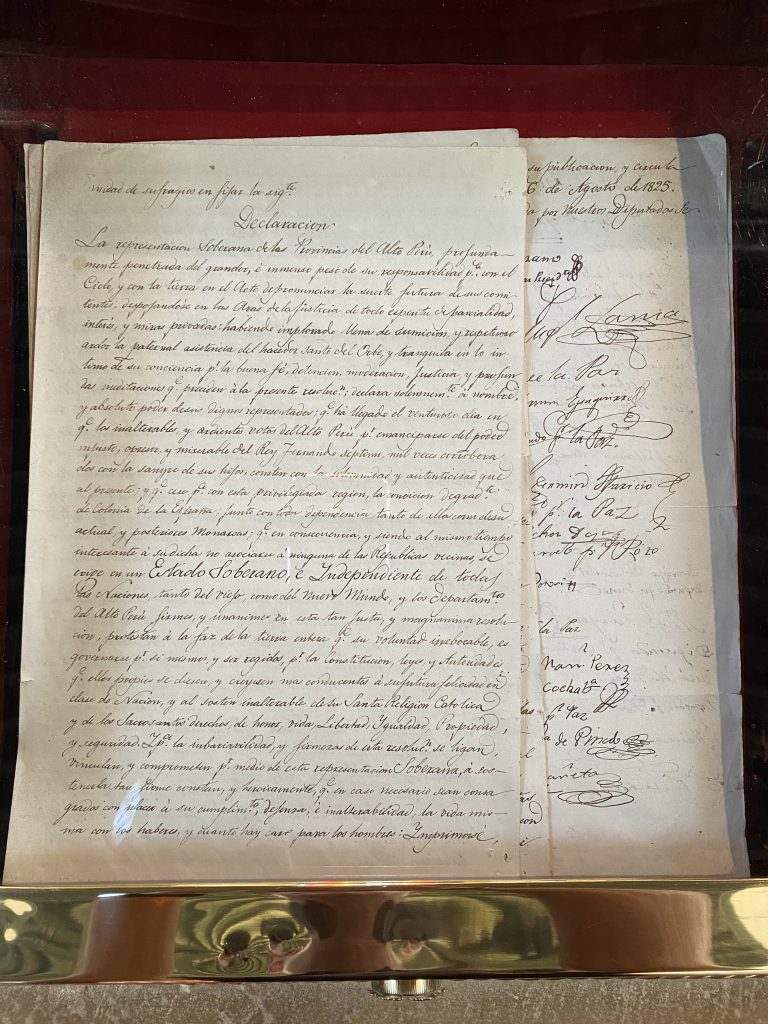 nidad de sufragios en fijar la sigte
Declaracion
La representacion Soberana de las Provincias del Alto Perú, profunda-
mente penetrada del grandor, é inmenso peso de su responsavilidad pa. con el
Cielo, y con la tierra en el Acto de pronunciar la suerte futura de sus comi-
tentes, despojandose en las Aras de la justicia de todo espiritu de parcialidad,
interes, y miras privadas: habiendo implorado llena de sumicion, y respetuoso
ardor la paternal asistencia del hacedor Santo del Orbe, y tranquila en lo in-
timo de su conciencia pr. la buena fé, detencion, moderacion, Justicia, y profun-
das meditaciones q. preciden à la presente resolucn.; declara solemnemte. à nombre,
y absoluto poder de sus dignos representados; q. ha llegado el venturoso dia en
q. los inalterables, y ardientes votos del Alto Perú pr. emanciparse del poder
injusto, opresor, y miserable del Rey Fernando septimo, mil veces corrobora-
dos con la sangre de sus hijos, consten con la solemnidad y autenticidad que
al presente; y q. cese pa. con esta privilegiada region, la condicion degradte.
de Colonia de la España, junto con toda dependencia tanto de ella como de su
actual, y posteriores Monarcas; q. en consecuencia, y siendo al mismo tiempo
interesante à su dicha no asociarse à ninguna de las Republicas vecinas, se
erige en un Estado Soberano, é Independiente de todas
las Naciones, tanto del viejo, como del nuevo Mundo, y los departamtos.
del Alto Perú firmes, y unanimes en esta tan justa, y magnanima resolu-
cion, protestan à la faz de la tierra entera q. su voluntad irrebocable, es
governarse pr. si mismos, y ser regidos, pr. la Constitucion, leyes, y Autoridades
q. ellos propios se diesen, y creyesen mas conducentes à su futura felicidad en
clase de Nacion, y al sosten inalterable de su Santa Religion Catolica
y de los Sacrosantos derechos, de honor, vida, Libertad, Ygualdad, Propiedad,
y seguridad. Y pa. la inbariavilidad, y firmeza de esta resolucn. se ligan,
vinculan, y comprometen pr. medio de esta representacion Soberana, à sos-
tenerla tan firme, constan, y heroicamente, q. en caso necesario sean consa-
grados con placer à su cumplimto., defensa, é inalterabilidad, la vida mis-
ma con los haberes, y cuanto hay caro para los hombres: Ymprimase,
su publicacion, y circula
6 de Agosto de 1825.
da por nuestros Diputados Se
rano
la Paz
pr. la Paz
Aparicio
pr. la Paz
la Paz
Perez
Cochaba
pr. Paz
a de Pinedo